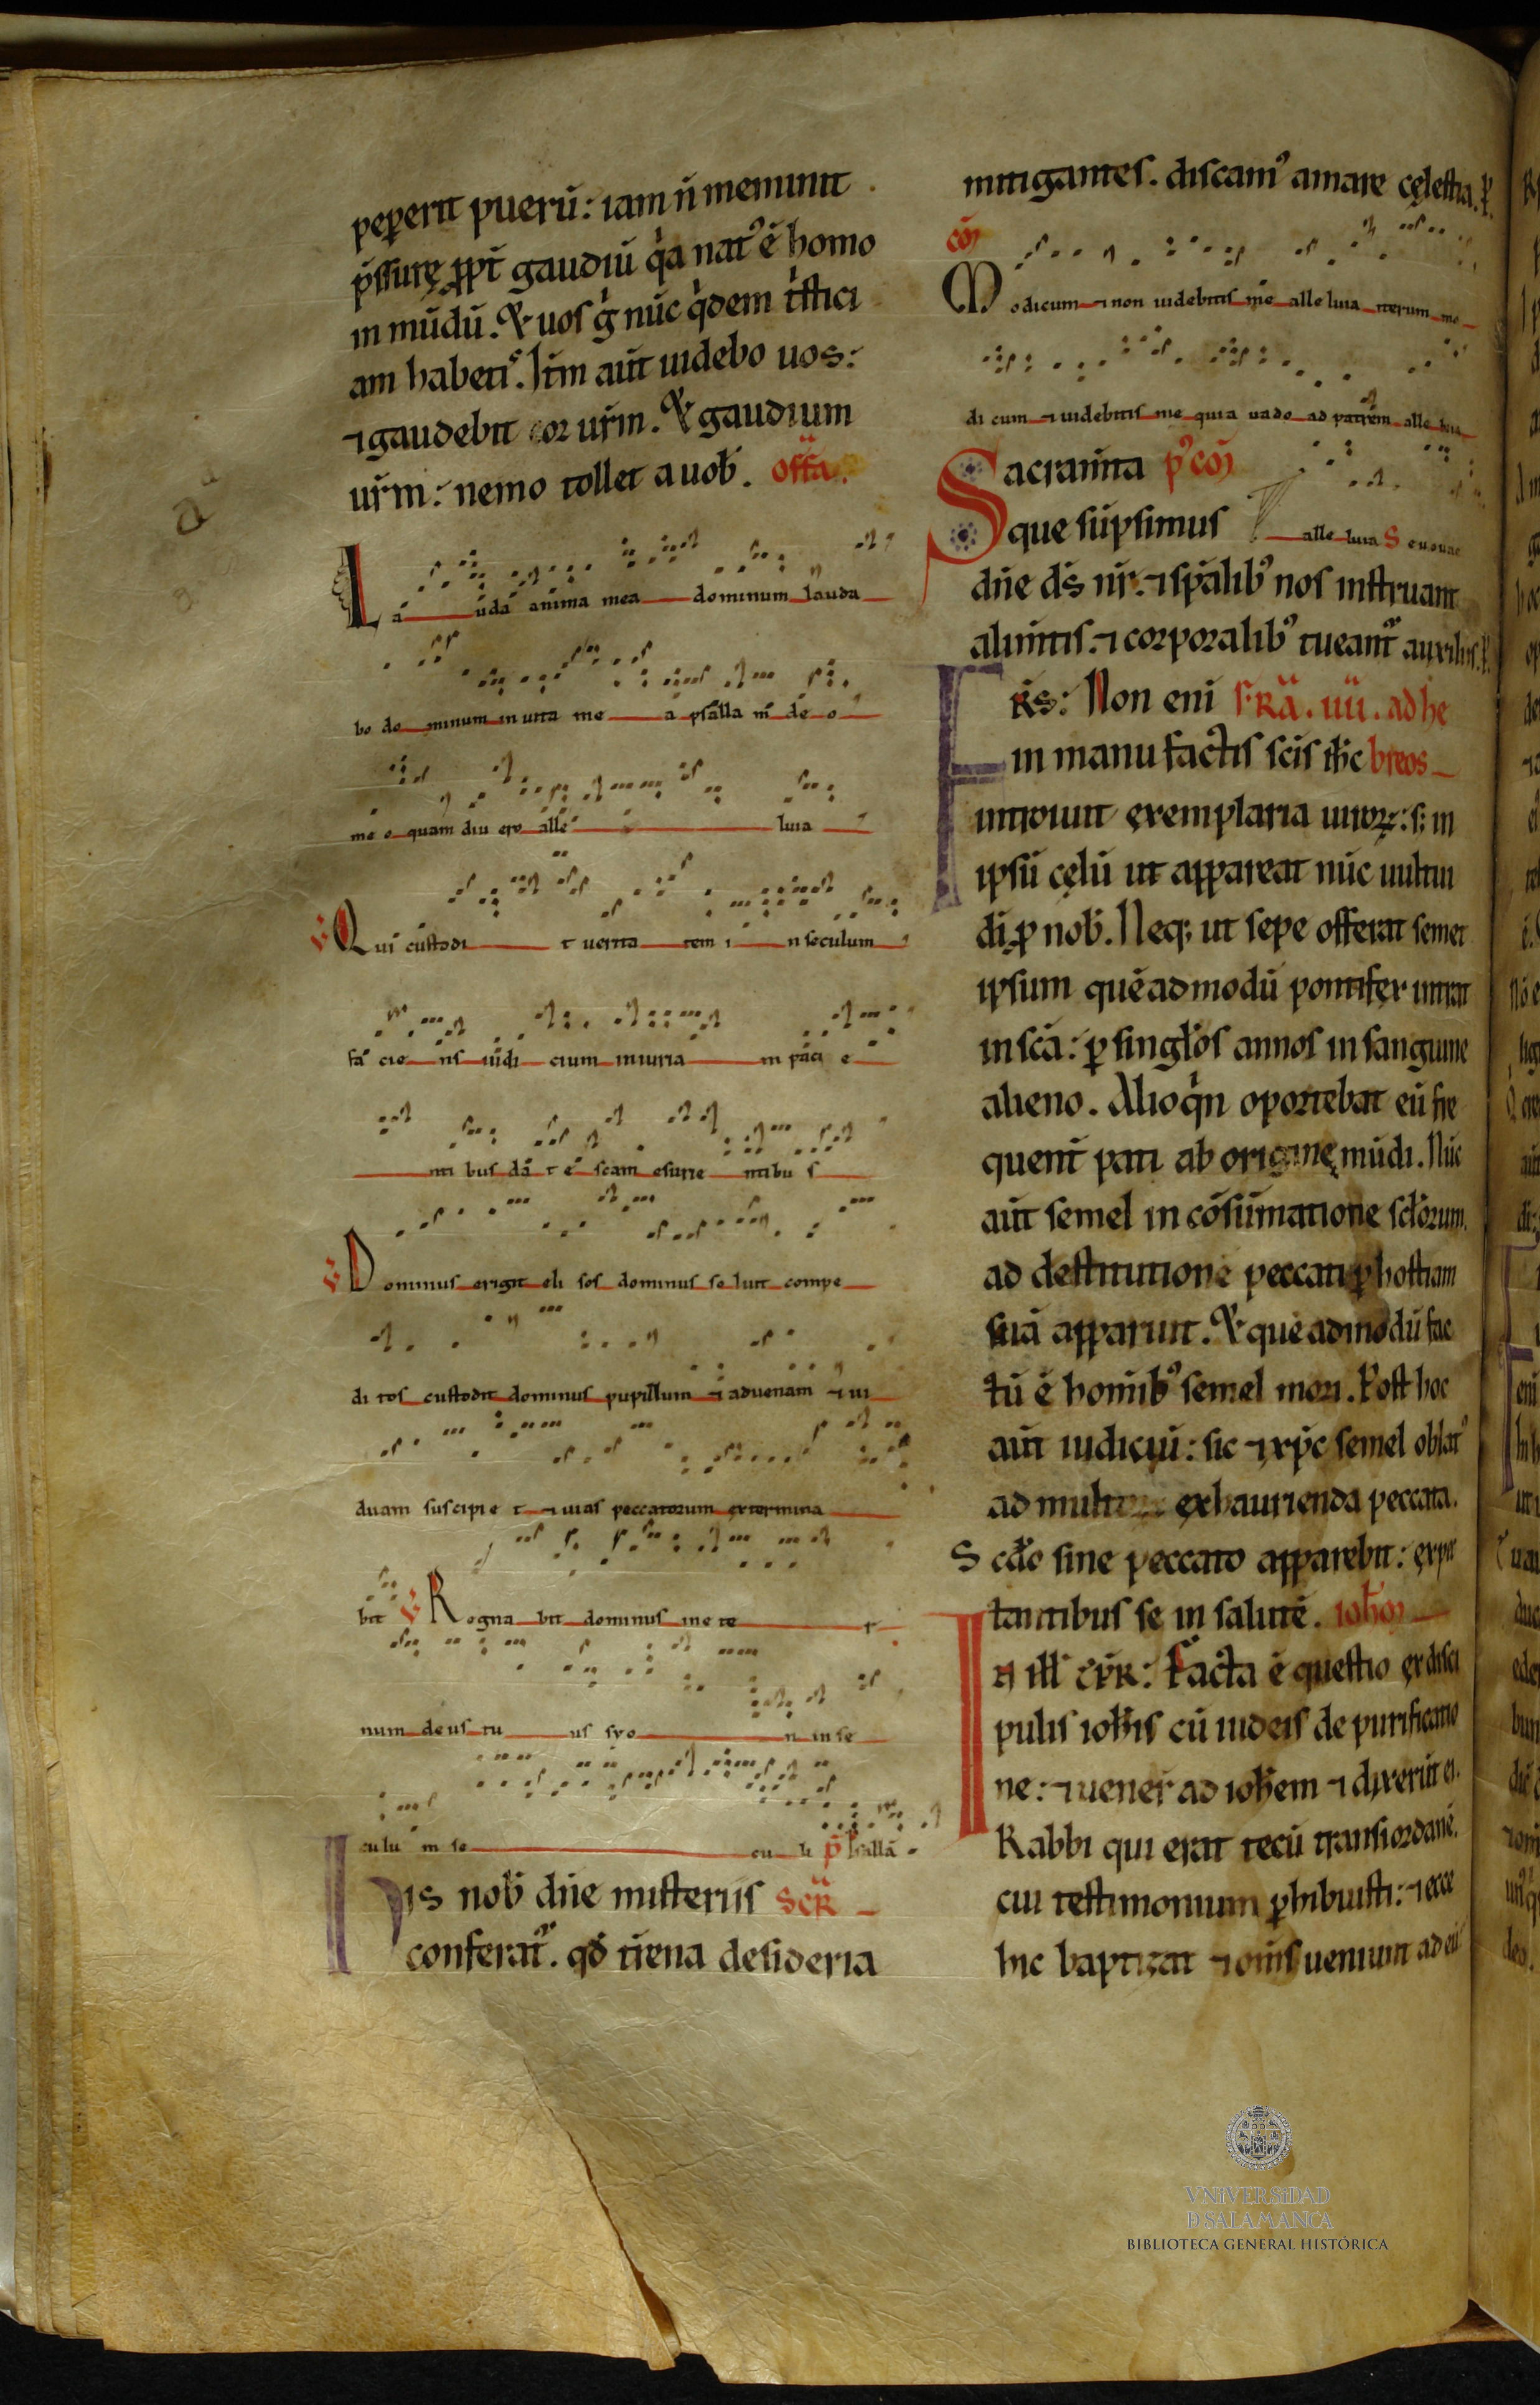 peperit puerū: iam ñ meminit
p̄ssurę ꝓpt̄ gaudiū qͥa natꝰ ē homo
in mūdū. Et uos gͥ nūc qͥdem tͥstici
am habetis. Itm̄ aut̄ uidebo uos:
⁊ gaudebit cor ur̄m. Et gaudium
ur̄m: nemo tollet a uob̄. off̄a.
La uda anima mea dominum lauda
bo do minum in uita me a psalla m̄ de o
me o quam diu ero alle luia
℣ Qui custodi t uerita tem i n seculum
fa cie ns iudi cium iniuria m paci e
nti bus da t e scam esurie ntibu s
℣ Dominus erigit eli sos dominus soluit compe
di tos custodit dominus pupillum ⁊ aduenam ⁊ ui
duam suscipie t ⁊ uias peccatorum extermina
bit ℣ Regna bit dominus in e te r
num de us tu us syo n in se
culu m se cu li p̄ psallā
His nob̄ dn̄e misteriis Scr̄
conferatᷣ. qđ tr̄ena desideria
mitigantes. discamꝰ amare cęlestia. ꝑ.
cō
Modicum ⁊ non uidebitis me alle luia iterum mo
di cum ⁊ uidebitis me quia uado ad patrem alle luia
Sacram̄ta pꝰcō
que sūpsimus alle luia S euouae
dn̄e dš nr̄. ⁊ sp̄alibꝰ nos instruant
alim̄tis. ⁊ corporalibꝰ tueantᷣ auxiliis. ꝑ.
FR̄s: Non eni f̄RA. uū. ad he
in manu factis scīs ih̄c breos
introiuit exemplaria uiuoꝝ: s; in
ipsū cęlū ut appareat nūc uultui
di ꝓ nob̄. Neq; ut sepe offerat semet
ipsum quēadmodū pontifex intrat
in scā: ꝑ singl̄os annos in sanguine
alieno. Alioqͥn oportebat eū fre
quent̄ pati ab originę mūdi. Nūc
aut̄ semel in cōsūmatione scl̄orum.
ad destitutionē peccati ꝑ hostiam
suā apparuit. Et quēadmodū fac
tū ē homībꝰ semel mori. Post hoc
aut̄ iudiciū: sic ⁊ xp̄c semel oblatꝰ
ad multorum exhaurienda peccata.
Scđo sine peccato apparebit: expec
tantibus se in salutē. ioh̄m
In ill̄ tp̄R: Facta ē questio ex disci
pulis ioh̄is cū iudeis de purificatio
ne: ⁊ uener̄ ad ioh̄em ⁊ dixerūt ei.
Rabbi qui erat tecū trans iordanē.
cui testimonium ꝑhibuisti: ⁊ ecce
hic baptizat ⁊ om̄s ueniunt ad eū
VNiVERSiDAD
D SALAMANCA
BIBLIOTECA GENERAL HISTÓRICA